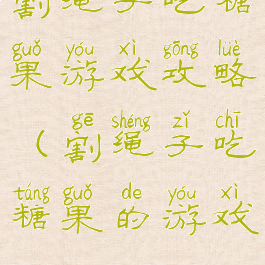 割绳子吃糖
guǒ yóu xì gōng lüè
果游戏攻略
gē shéng zǐ chī
（割绳子吃
táng guǒ de yóu xì
糖果的游戏